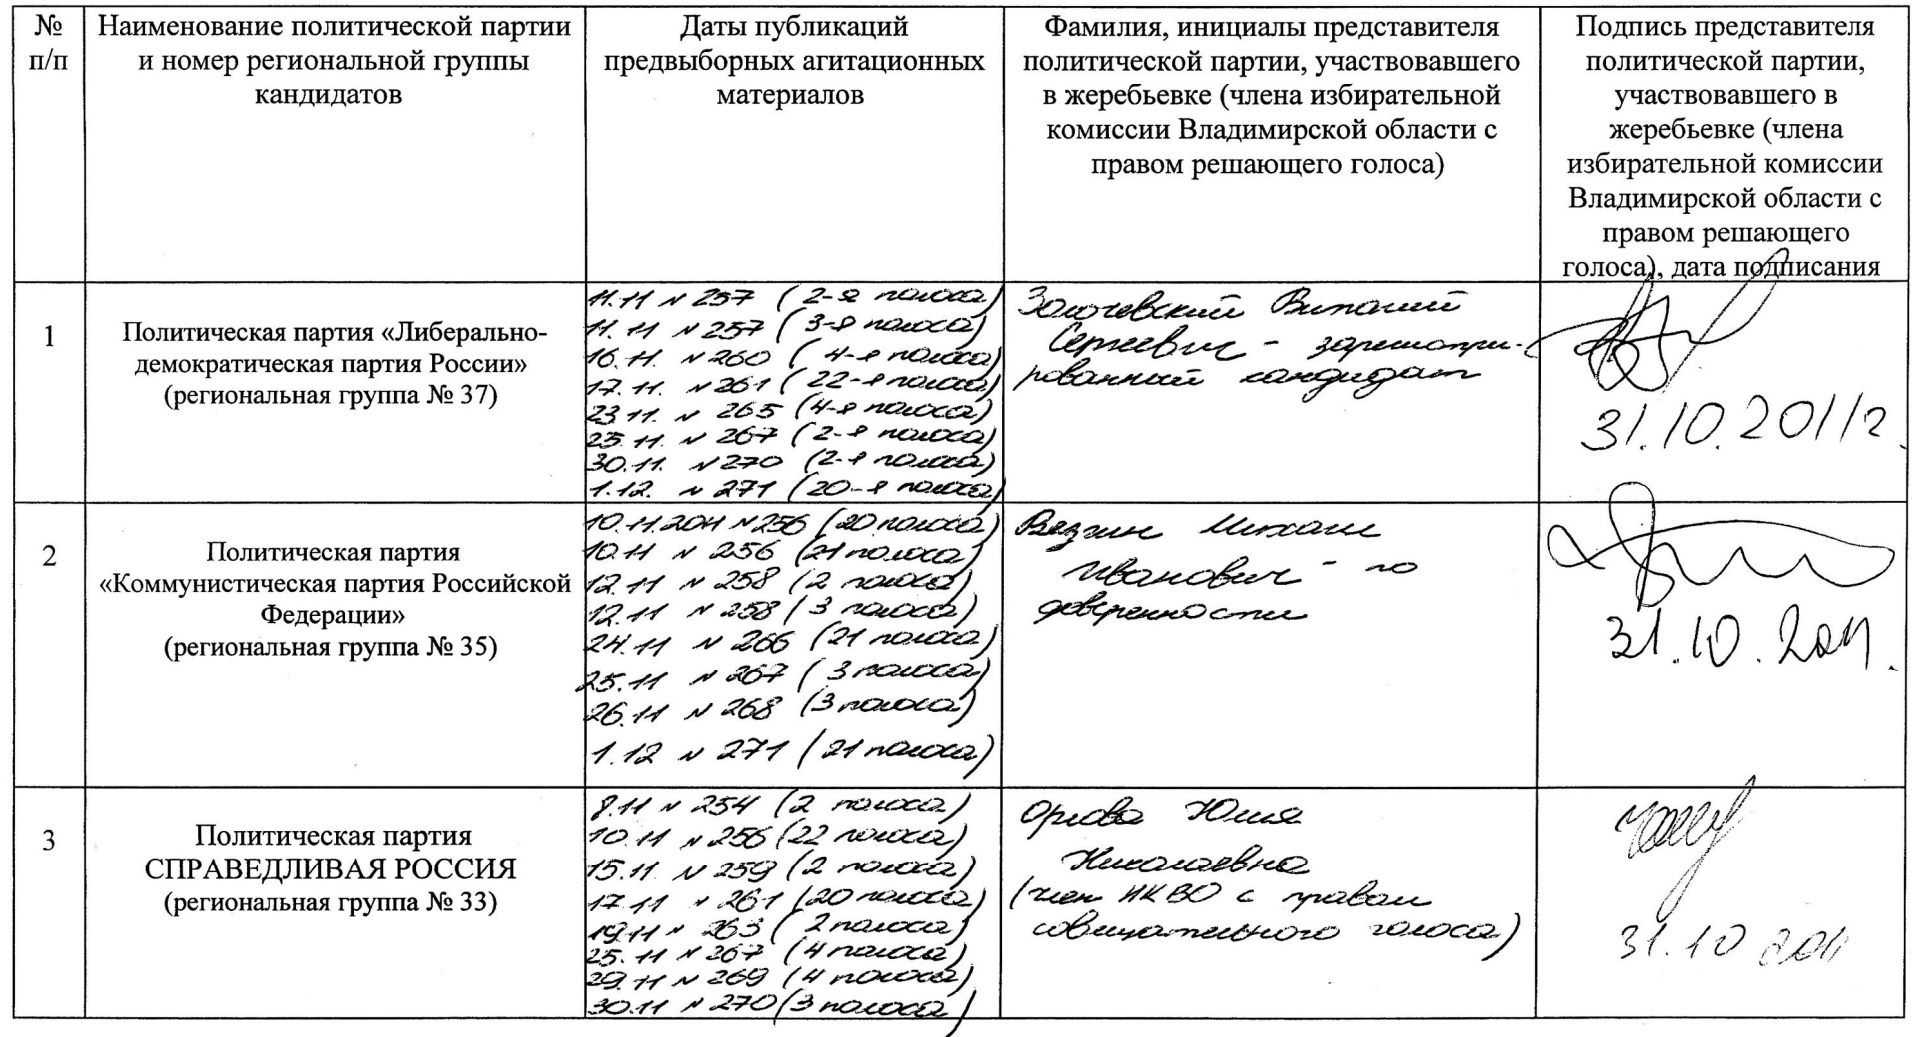 №
п/п
Наименование политической партии
и номер региональной группы
кандидатов
Даты публикаций
предвыборных агитационных
материалов
Фамилия, инициалы представителя
политической партии, участвовавшего
в жеребьевке (члена избирательной
комиссии Владимирской области с
правом решающего голоса)
Подпись представителя
политической партии,
участвовавшего в
жеребьевке (члена
избирательной комиссии
Владимирской области с
правом решающего
голоса), дата подписания
1
Политическая партия «Либерально-
демократическая партия России»
(региональная группа № 37)
11.11 № 257 (2-я полоса)
11.11 № 257 (3-я полоса)
16.11. № 260 (4-я полоса)
17.11. № 261 (22-я полоса)
23.11. № 265 (4-я полоса)
25.11. № 267 (2-я полоса)
30.11. № 270 (2-я полоса)
1.12. № 271 (20-я полоса)
Виталий
Сергеевич - зарегистри-
рованный кандидат
31.10.2011г.
2
Политическая партия
«Коммунистическая партия Российской
Федерации»
(региональная группа № 35)
10.11.2011 № 256 (20 полоса)
10.11 № 256 (21 полоса)
12.11 № 258 (2 полоса)
12.11 № 258 (3 полоса)
24.11 № 266 (21 полоса)
25.11 № 267 (3 полоса)
26.11 № 268 (3 полоса)
1.12 № 271 (21 полоса)
Михаил
Иванович - по
доверенности
31.10.2011.
3
Политическая партия
СПРАВЕДЛИВАЯ РОССИЯ
(региональная группа № 33)
8.11 № 254 (2 полоса)
10.11 № 256 (22 полоса)
15.11. № 259 (2 полоса)
17.11 № 261 (20 полоса)
19.11 № 263 (2 полоса)
25.11 № 267 (4 полоса)
29.11 № 269 (4 полоса)
30.11 № 270 (3 полоса)
Орлова Юлия
Николаевна
(член ИКВО с правом
совещательного голоса)
31.10 2011